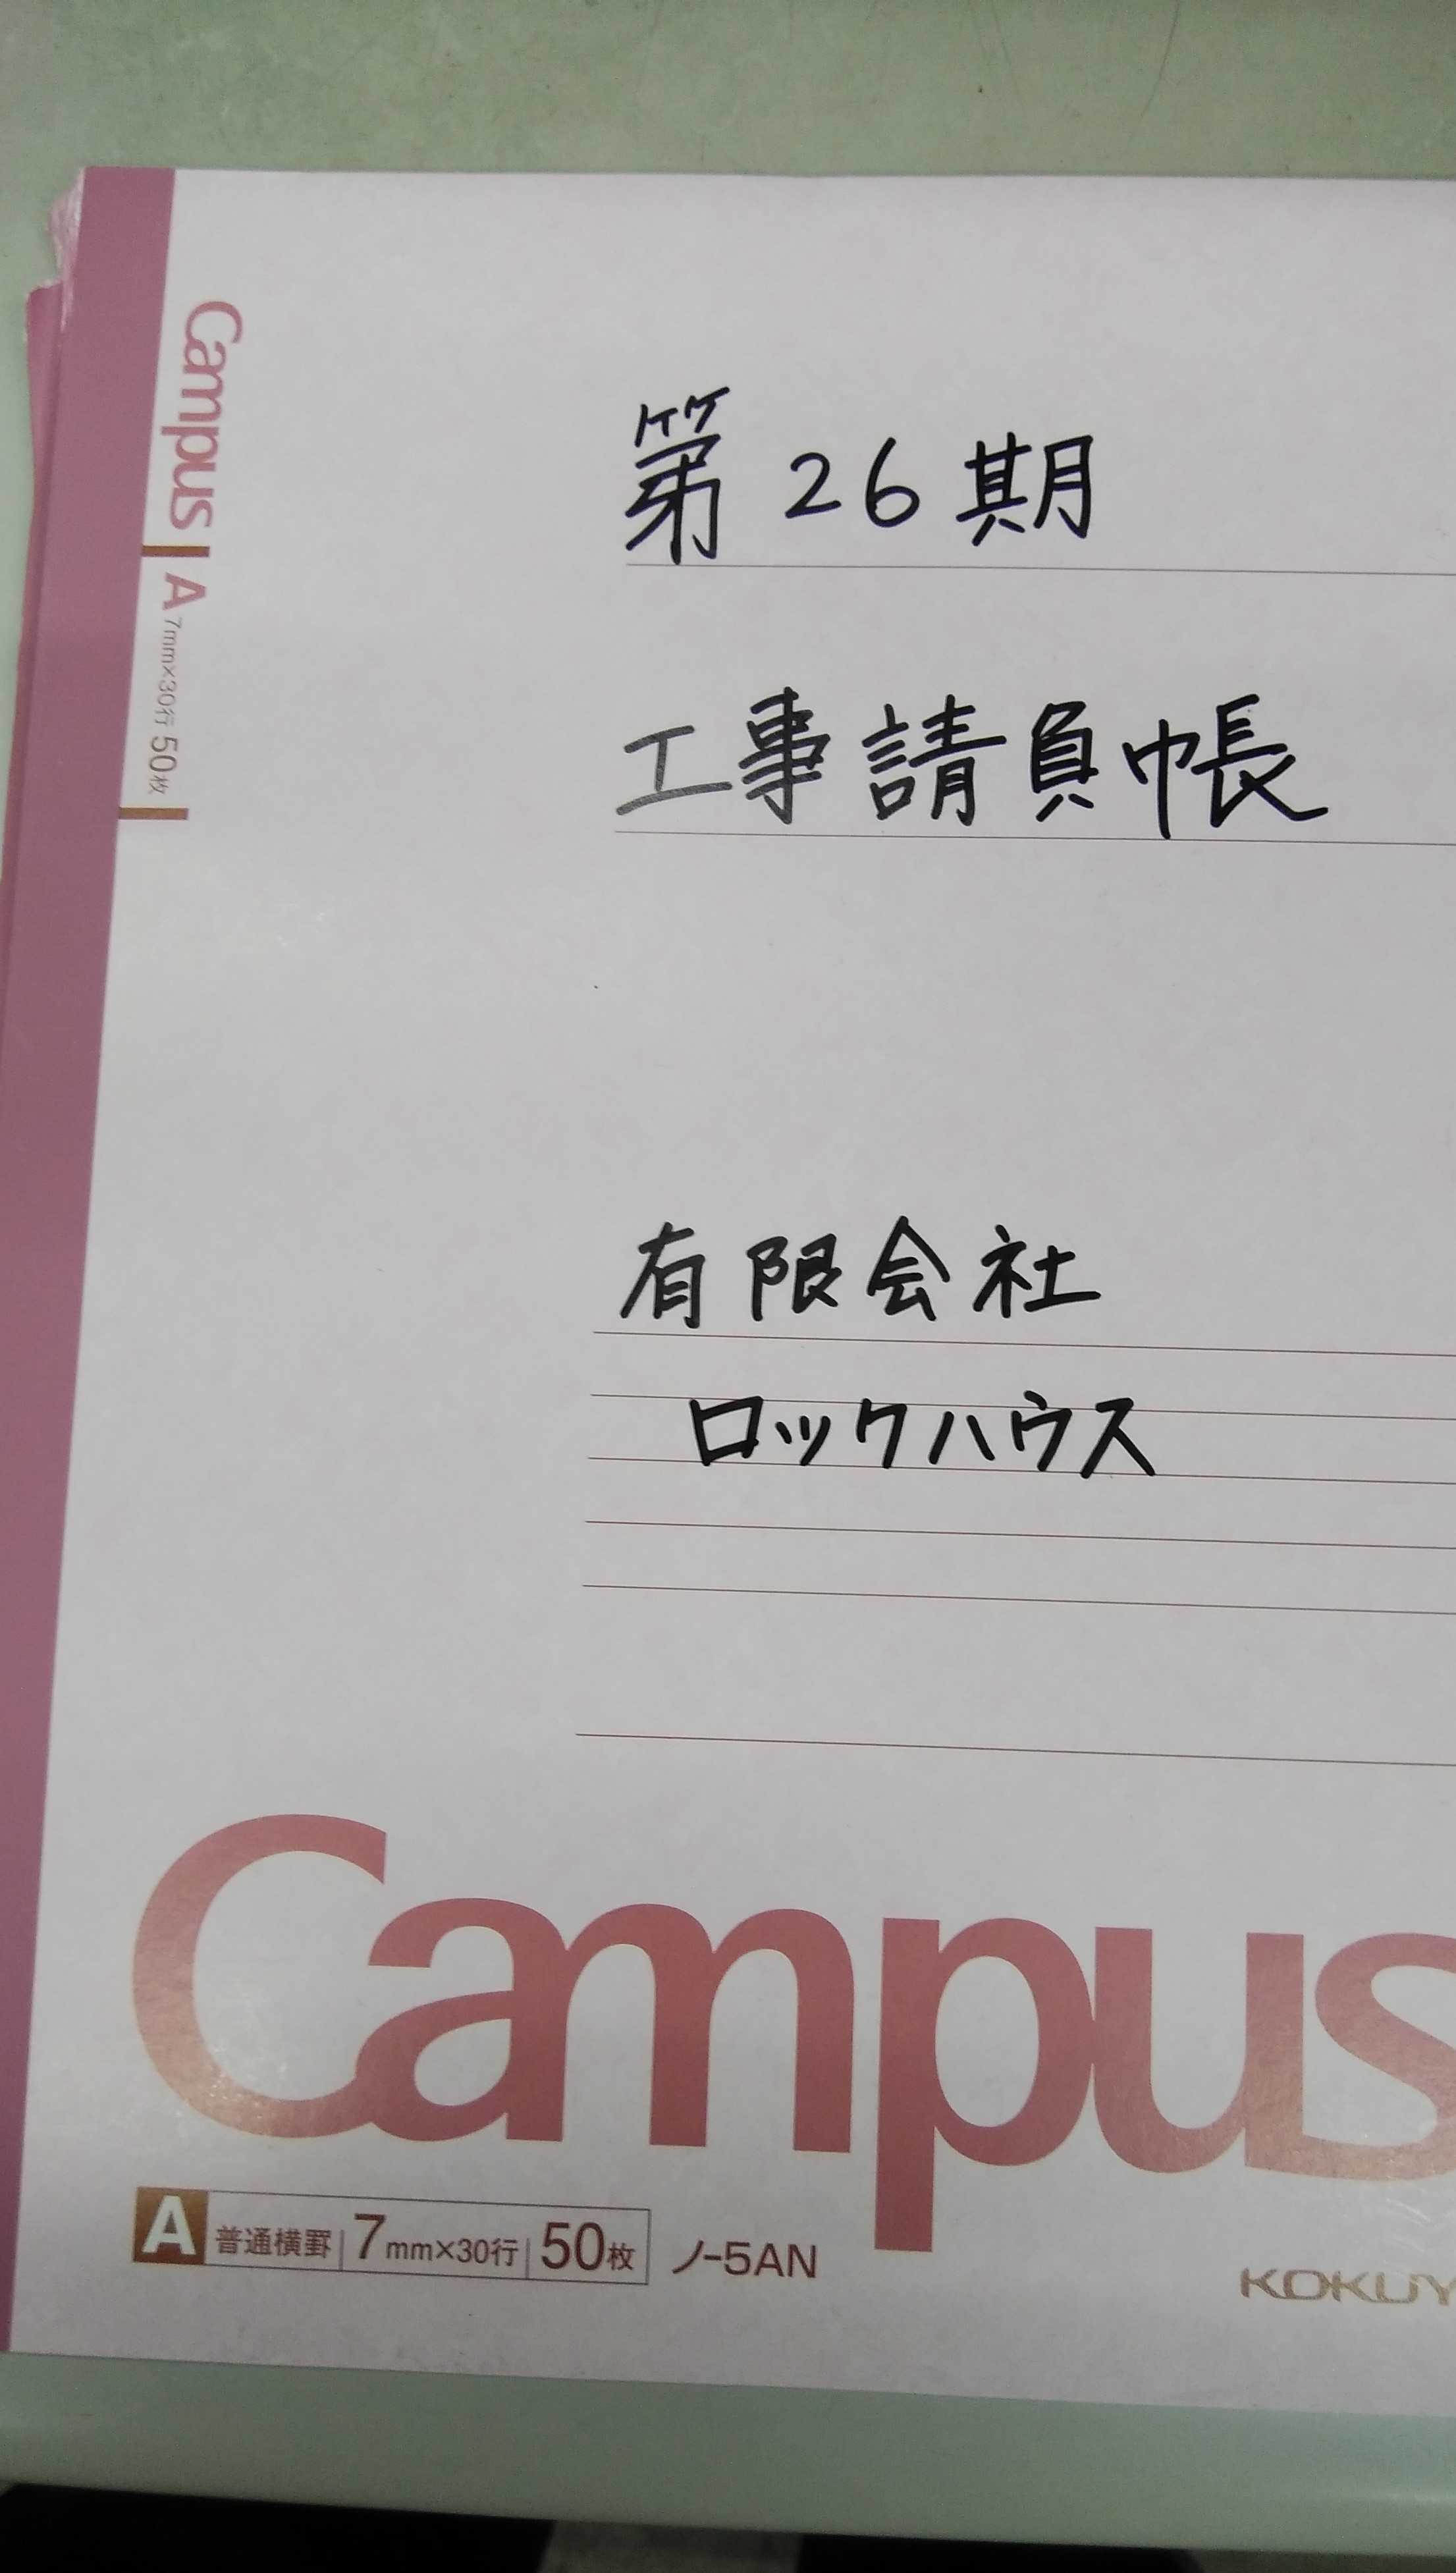 Campus A 7mm×30行 50枚
第26期
工事請負帳
有限会社
ロックハウス
Campus
A 普通横罫 7mm×30行 50枚 ノ-5AN
KOKUY